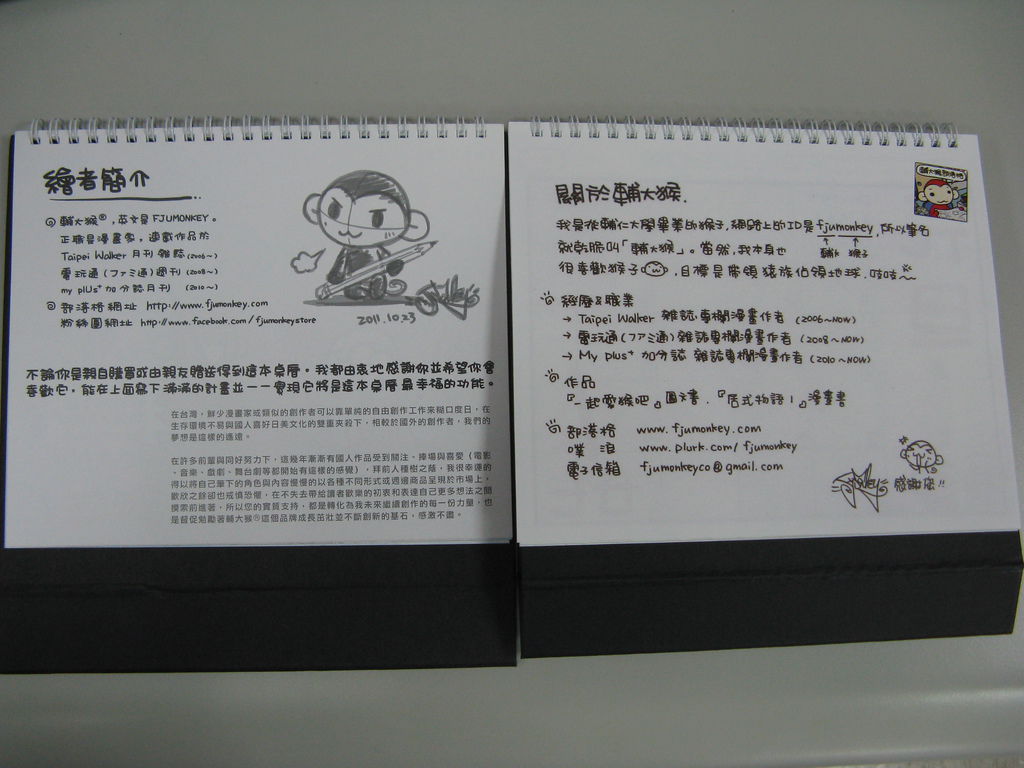 繪者簡介
◎ 輔大猴®,英文是 FJUMONKEY。
正職是漫畫家,連載作品於
Taipei Walker 月刊雜誌 (2006~)
電玩通 (ファミ通) 週刊 (2008~)
my plus+ 加分誌月刊 (2010~)
◎ 部落格網址 http://www.fjumonkey.com
粉絲團網址 http://www.facebook.com/fjumonkeystore
2011.10.23
不論你是親自購買或由親友贈送得到這本桌曆。我都由衷地感謝你並希望你會
喜歡它,能在上面寫下滿滿的計畫並一一實現它將是這本桌曆最幸福的功能。
在台灣,鮮少漫畫家或類似的創作者可以靠單純的自由創作工作來糊口度日,在
生存環境不易與國人喜好日美文化的雙重夾殺下,相較於國外的創作者,我們的
夢想是這樣的遙遠。
在許多前輩與同好努力下,這幾年漸漸有國人作品受到關注、捧場與喜愛(電影
、音樂、戲劇、舞台劇等都開始有這樣的感覺),拜前人種樹之蔭,我很幸運的
得以將自己筆下的角色與內容慢慢的以各種不同形式或週邊商品呈現於市場上,
歡欣之餘卻也戒慎恐懼,在不失去帶給讀者歡樂的初衷和表達自己更多想法之間
摸索前進著,所以您的實質支持,都是轉化為我未來繼續創作的每一份力量,也
是督促勉勵著輔大猴®這個品牌成長茁壯並不斷創新的基石,感激不盡。
關於輔大猴.
我是從輔仁大學畢業的猴子,網路上的ID是fjumonkey,所以筆名
輔大 猴子
就乾脆叫「輔大猴」。當然,我本身也
很喜歡猴子,目標是帶領猿族佔領地球.吱吱~
經歷&職業
→ Taipei Walker 雜誌專欄漫畫作者 (2006~NOW)
→ 電玩通 (ファミ通) 雜誌專欄漫畫作者 (2008~NOW)
→ My plus+ 加分誌 雜誌專欄漫畫作者 (2010~NOW)
作品
『一起愛猴吧』圖文書.『居式物語1』漫畫書
部落格 www.fjumonkey.com
噗浪 www.plurk.com/fjumonkey
電子信箱 fjumonkeyco@gmail.com
感謝您!!